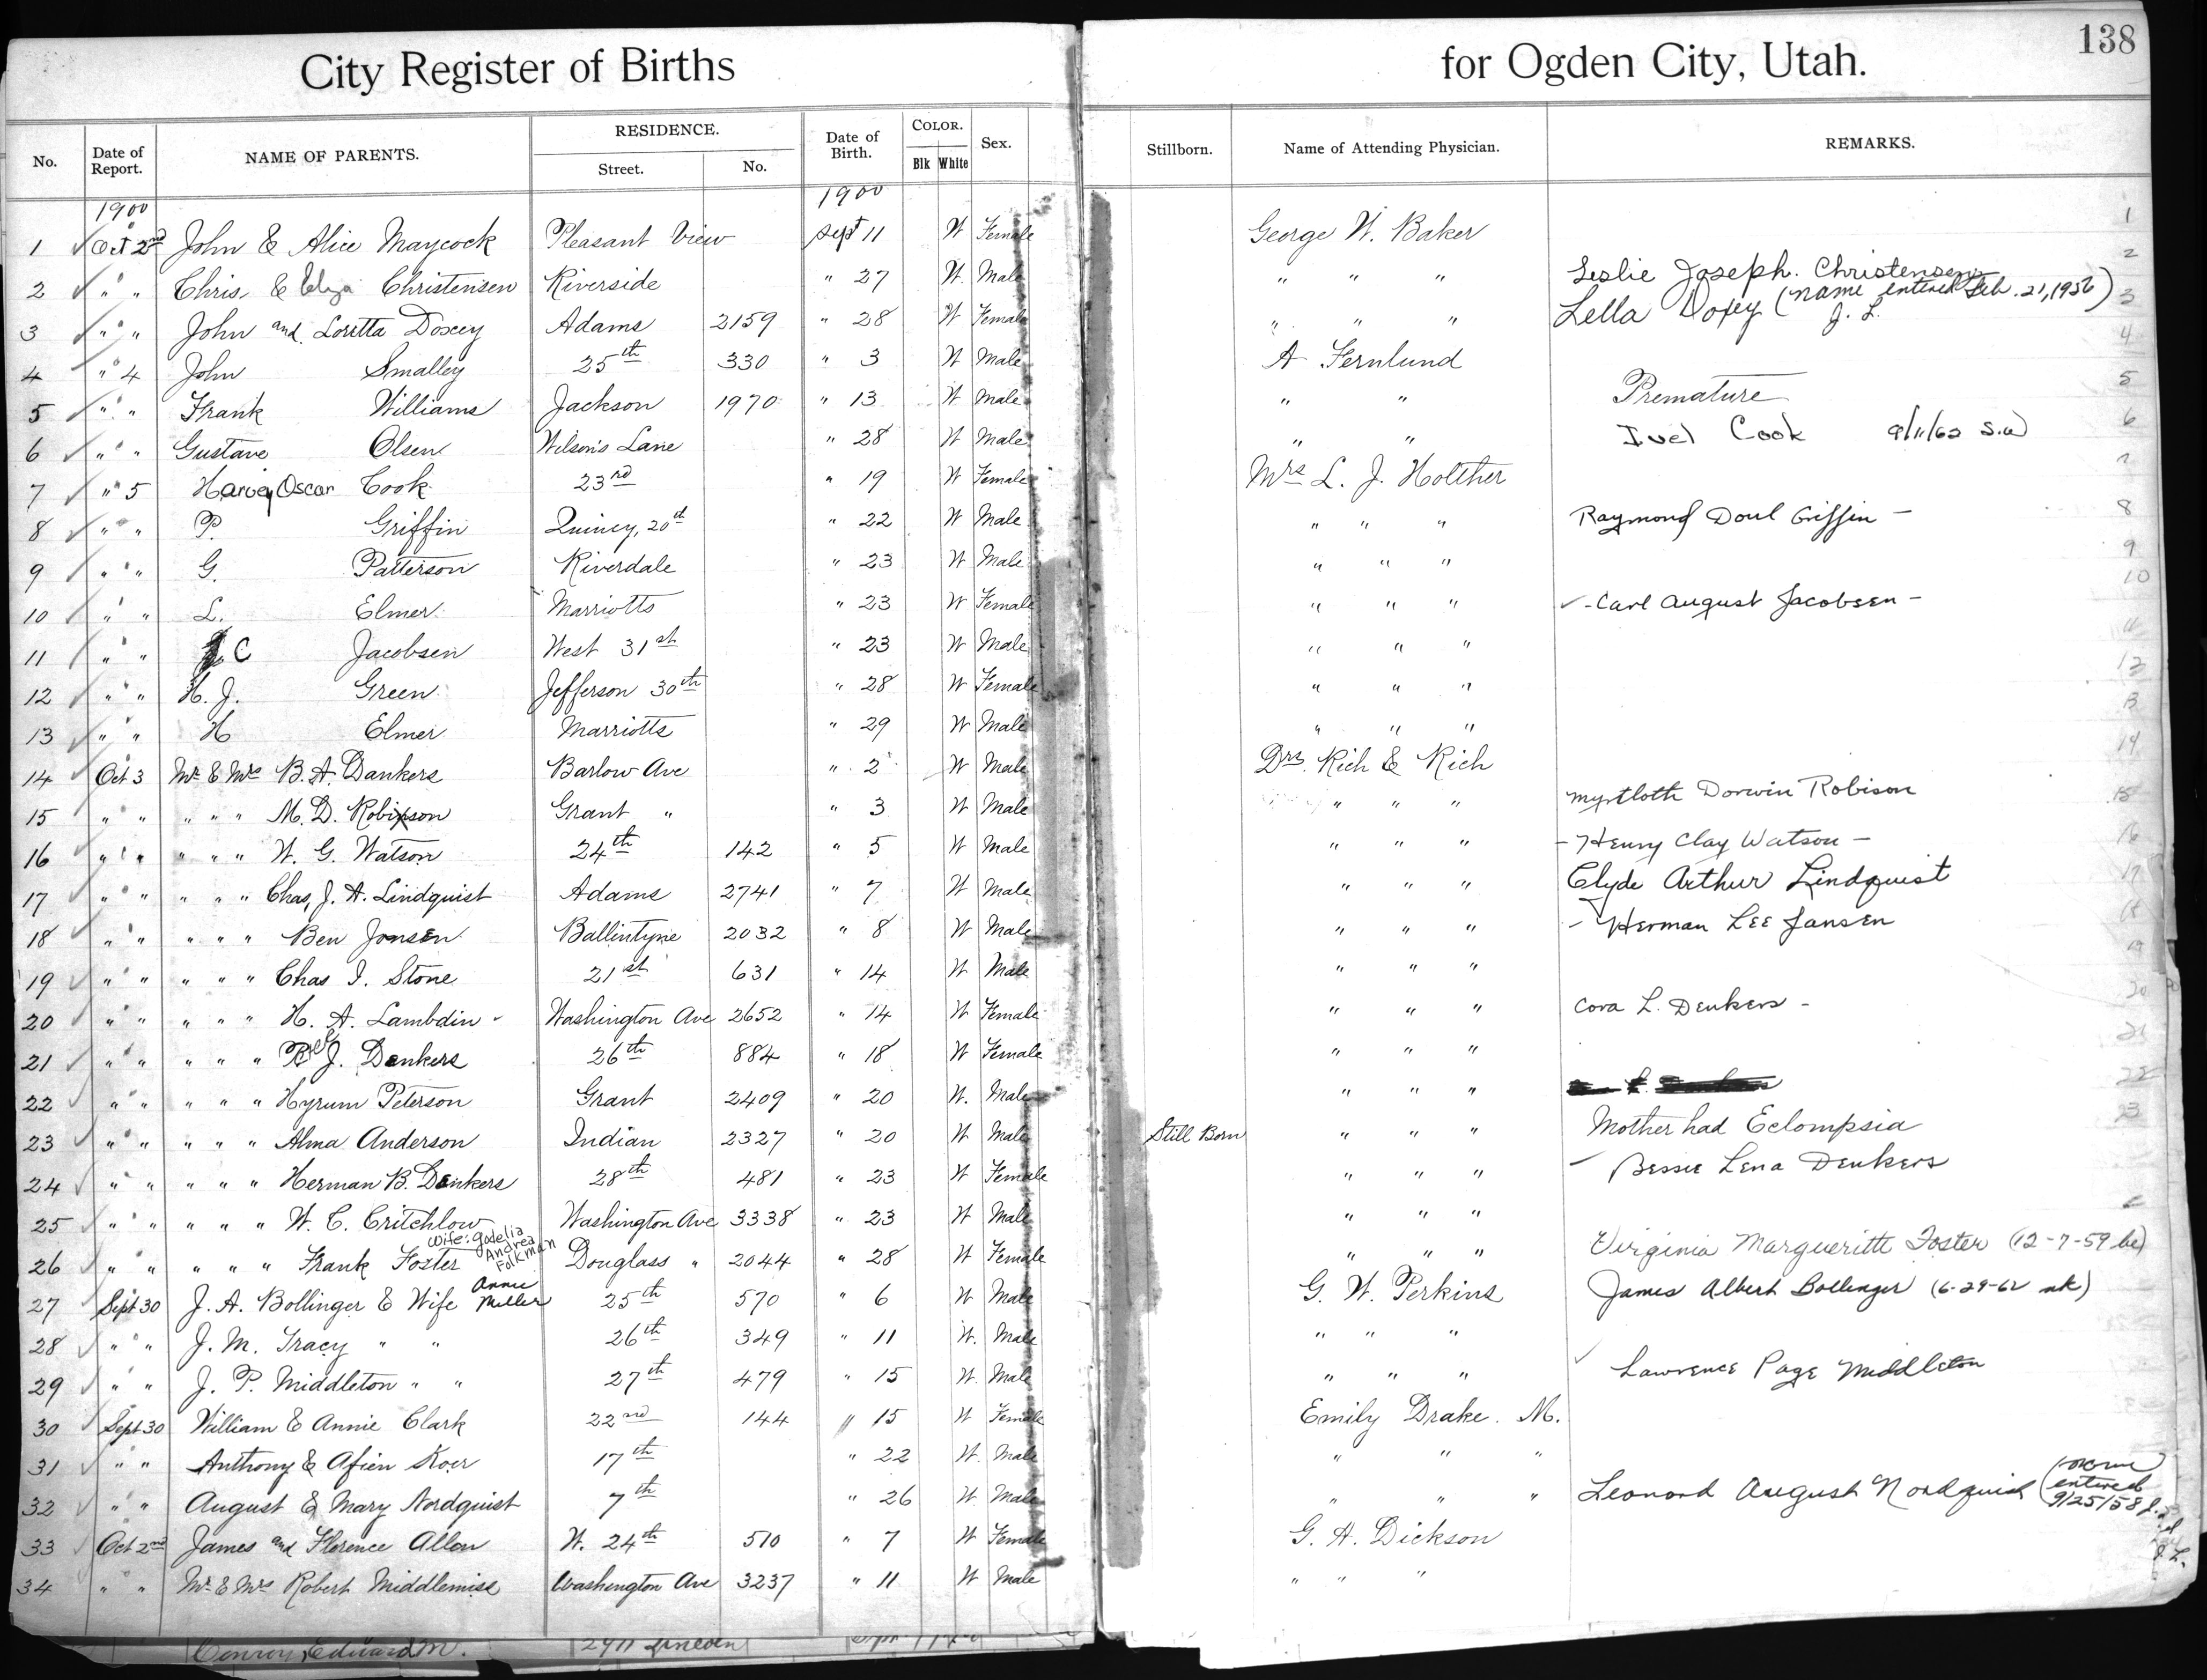 138
City Register of Births for Ogden City, Utah.
No. Date of Report. NAME OF PARENTS. RESIDENCE. Street. No. Date of Birth. COLOR. Blk White Sex. Stillborn. Name of Attending Physician. REMARKS.
1900 1900
1 Oct 2nd John & Alice Maycock Pleasant View Sept 11 W Female George W. Baker 1
2 " " Chris. & Eliza Christensen Riverside " 27 W. Male " " " Leslie Joseph. Christensen 2
3 " " John and Loretta Doxey Adams 2159 " 28 W Female " " " Lella Doxey (name entered Feb. 21, 1956) J. L. 3
4 " 4 John Smalley 25th 330 " 3 W Male A Fernlund 4
5 " " Frank Williams Jackson 1970 " 13 W Male " " Premature 5
6 " " Gustave Olsen Wilson's Lane " 28 W Male " " Ivel Cook 9/11/62 S.W 6
7 " 5 Harvey Oscar Cook 23rd " 19 W Female Mrs L. J. Holther 7
8 " " P. Griffin Quincy, 20th " 22 W Male " " " Raymond Doul Griffin - 8
9 " " G. Patterson Riverdale " 23 W Male " " " 9
10 " " L. Elmer Marriotts " 23 W Female " " " - Carl August Jacobsen - 10
11 " " C Jacobsen West 31st " 23 W Male " " " 11
12 " " H. J. Green Jefferson 30th " 28 W Female " " " 12
13 " " H Elmer Marriotts " 29 W Male " " " 13
14 Oct 3 Mr & Mrs B. A. Dankers Barlow Ave " 2 W Male Drs. Rich & Rich 14
15 " " " " " M. D. Robinson Grant " " 3 W Male " " " Myrtloth Dorwin Robison 15
16 " " " " " W. G. Watson 24th 142 " 5 W Male " " " - Henry Clay Watson - 16
17 " " " " " Chas, J. A. Lindquist Adams 2741 " 7 W Male " " " Clyde Arthur Lindquist 17
18 " " " " " Ben Jansen Ballintyne 2032 " 8 W Male " " " - Herman Lee Jansen 18
19 " " " " " Chas I. Stone 21st 631 " 14 W Male " " " 19
20 " " " " " H. A. Lambdin Washington Ave 2652 " 14 W Female " " " Cora L. Denkers - 20
21 " " " " " J. Denkers 26th 884 " 18 W Female " " " 21
22 " " " " " Hyrum Peterson Grant 2409 " 20 W. Male " " " 22
23 " " " " " Alma Anderson Indian 2327 " 20 W Male Still Born " " " Mother had Eclompsia 23
24 " " " " " Herman B. Denkers 28th 481 " 23 W Female " " " - Bessie Lena Denkers
25 " " " " " W. C. Critchlow Washington Ave 3338 " 23 W Male " " "
26 " " " " " Frank Foster wife: Godelia Andrea Folkman Douglass " 2044 " 28 W Female " " " Virginia Margueritte Foster (12-7-59 be)
27 Sept 30 J. A. Bollinger & Wife Annie Miller 25th 570 " 6 W Male G. W. Perkins James Albert Bollinger (6-29-62 mk)
28 " " J. M. Tracy " " 26th 349 " 11 W. Male " " "
29 " " J. P. Middleton " " 27th 479 " 15 W. Male " " " Lawrence Page Middleton
30 Sept 30 William & Annie Clark 22nd 144 " 15 W Female Emily Drake. M.
31 " " Anthony & Afien Koer 17th " 22 W. Male " " "
32 " " August & Mary Nordquist 7th " 26 W. Male " " " Leonard August Nordquist (name entered 9/25/58
33 Oct 2nd James and Florence Allen W. 24th 510 " 7 W Female G. A. Dickson
34 " " Mr & Mrs Robert Middlemiss Washington Ave 3237 " 11 W Male " " "
Conroy, Edward M. 2911 Lincoln